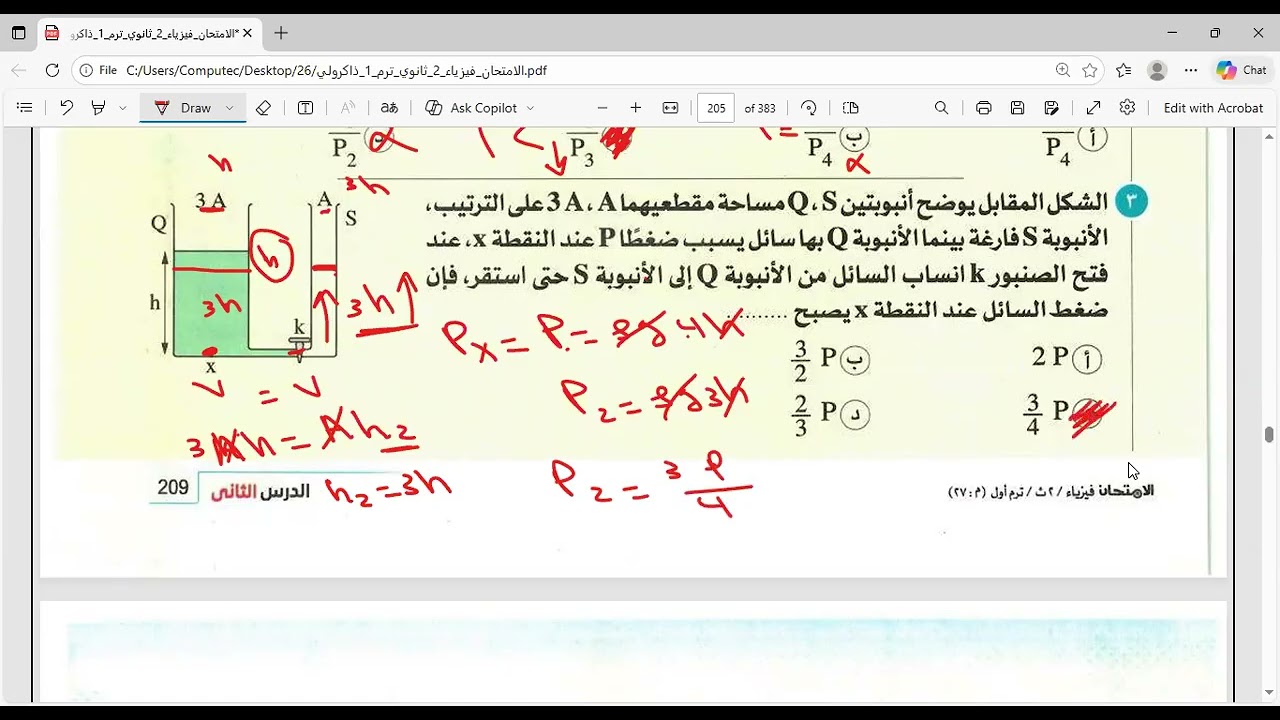 *الامتحان_فيزياء_2_ثانوي_ترم_1_ذاكرو
File C:/Users/Computec/Desktop/26/الامتحان_فيزياء_2_ثانوي_ترم_1_ذاكرولي.pdf
Chat
Draw
Ask Copilot
205 of 383
Edit with Acrobat
P4
P4
P3
P2
α
α
٣ الشكل المقابل يوضح أنبوبتين Q ، S مساحة مقطعيهما 3 A ، A على الترتيب،
الأنبوبة S فارغة بينما الأنبوبة Q بها سائل يسبب ضغطًا P عند النقطة x، عند
فتح الصنبور k انساب السائل من الأنبوبة Q إلى الأنبوبة S حتى استقر، فإن
ضغط السائل عند النقطة x يصبح ..........
أ 2 P
ب 3/2 P
3/4 P
د 2/3 P
h
3h
3 A
A
Q
S
h
3h
3h
h
k
x
V = V
3Ah = Ah2
h2 = 3h
Px = P = ρg 4h
P2 = ρg3h
P2 = 3 P/4
الامتحان فيزياء / ٢ ث / ترم أول (م : ٢٧)
الدرس الثانى 209